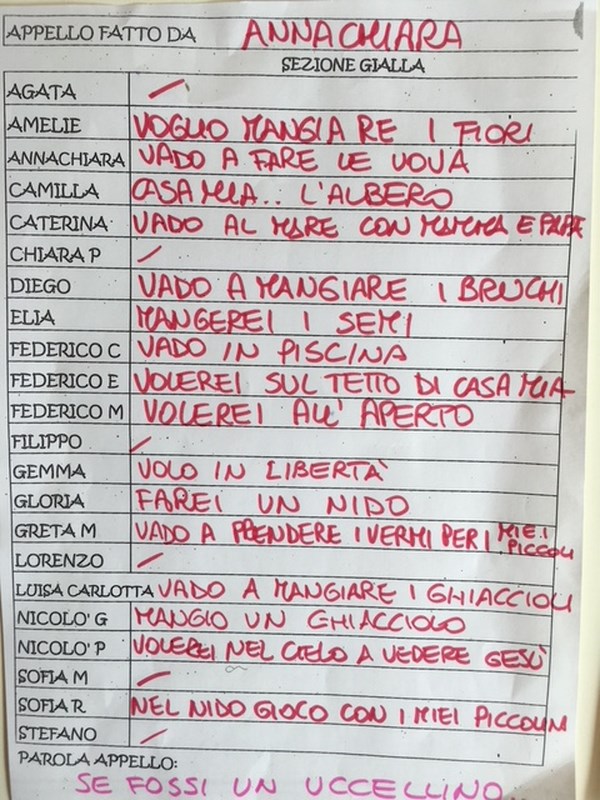 APPELLO FATTO DA ANNACHIARA
SEZIONE GIALLA
AGATA /
AMELIE VOGLIO MANGIARE I FIORI
ANNACHIARA VADO A FARE LE UOVA
CAMILLA CASA MIA.. L'ALBERO
CATERINA VADO AL MARE CON MAMMA E PAPÀ
CHIARA P /
DIEGO VADO A MANGIARE I BRUCHI
ELIA MANGEREI I SEMI
FEDERICO C VADO IN PISCINA
FEDERICO E VOLEREI SUL TETTO DI CASA MIA
FEDERICO M VOLEREI ALL' APERTO
FILIPPO /
GEMMA VOLO IN LIBERTÀ
GLORIA FAREI UN NIDO
GRETA M VADO A PRENDERE I VERMI PER I MIEI PICCOLI
LORENZO /
LUISA CARLOTTA VADO A MANGIARE I GHIACCIOLI
NICOLO' G MANGIO UN GHIACCIOLO
NICOLO' P VOLEREI NEL CIELO A VEDERE GESÙ
SOFIA M /
SOFIA R NEL NIDO GIOCO CON I MIEI PICCOLINI
STEFANO /
PAROLA APPELLO:
SE FOSSI UN UCCELLINO